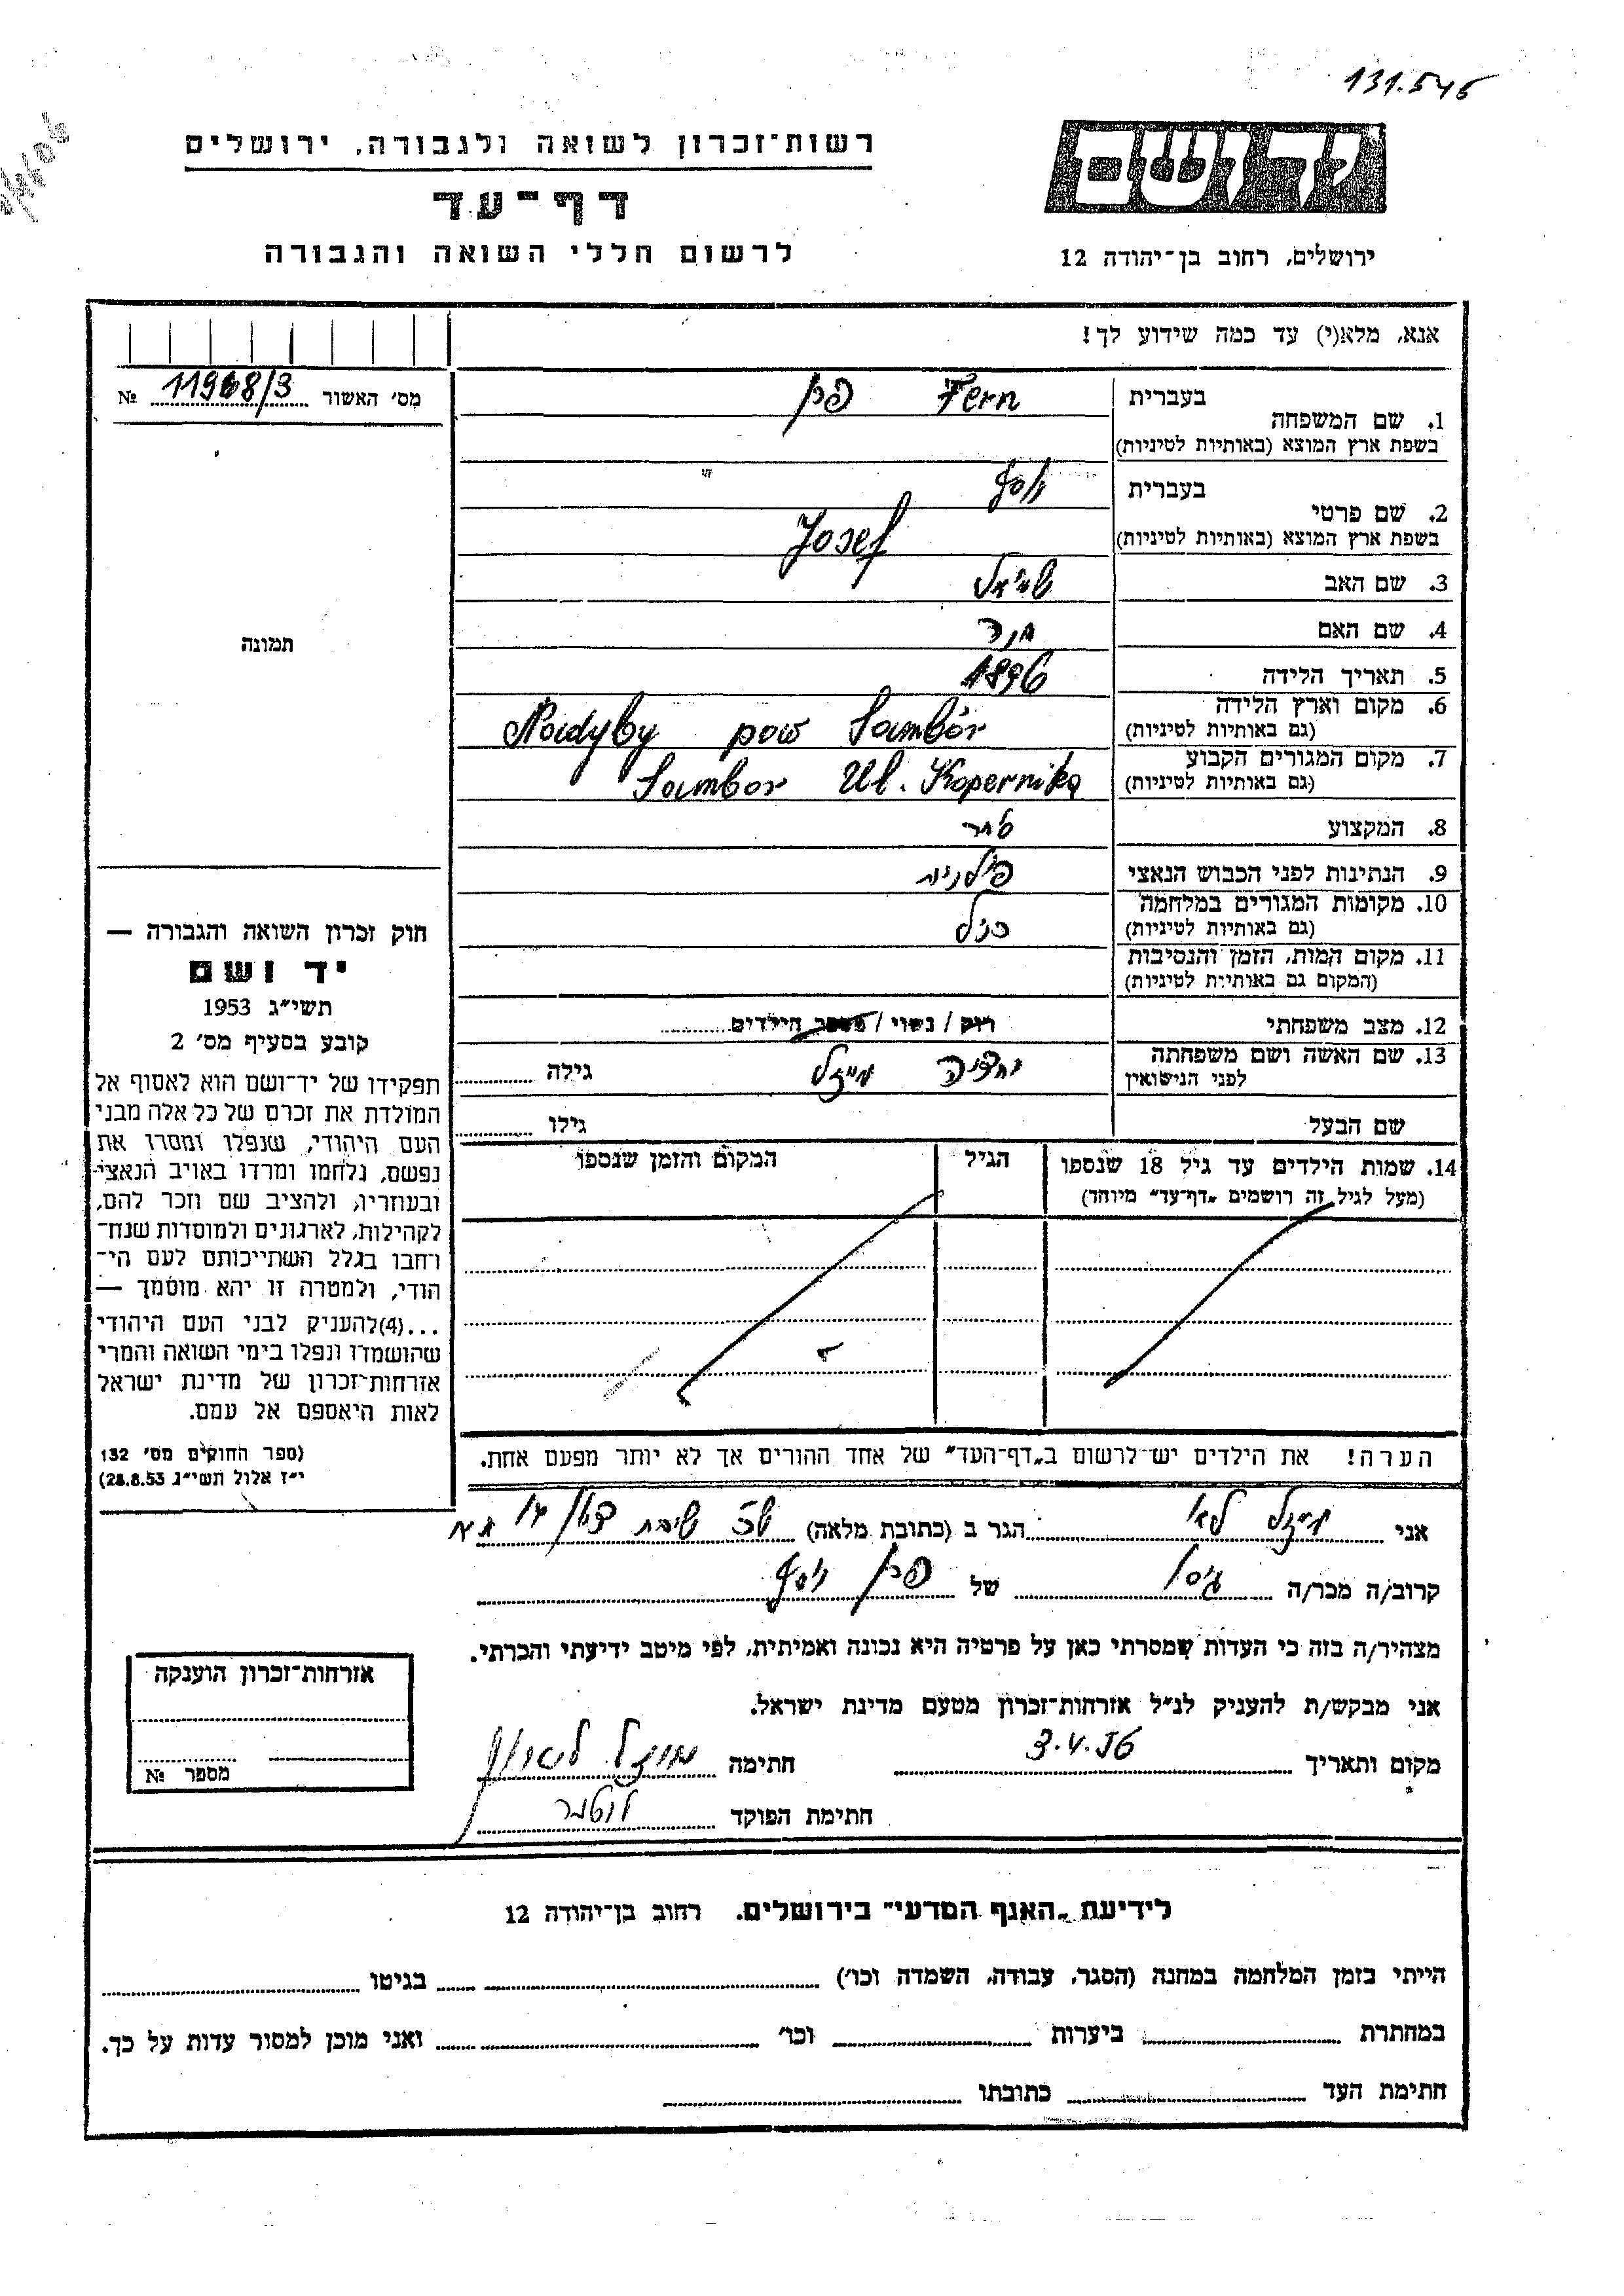 131.545
יד ושם
רשות־זכרון לשואה ולגבורה, ירושלים
דף־עד
לרשום חללי השואה והגבורה
ירושלים, רחוב בן־יהודה 12
אנא, מלא(י) עד כמה שידוע לך!
מס׳ האשור № 11968/3
תמונה
1. שם המשפחה בעברית Fern פרן
בשפת ארץ המוצא (באותיות לטיניות)
2. שם פרטי בעברית יוסף
בשפת ארץ המוצא (באותיות לטיניות) Josef
3. שם האב
4. שם האם
5. תאריך הלידה 1896
6. מקום וארץ הלידה
(גם באותיות לטיניות) Nadyby pow Sambór
7. מקום המגורים הקבוע
(גם באותיות לטיניות) Sambor Ul. Kopernika
8. המקצוע סוחר
9. הנתינות לפני הכבוש הנאצי פולנית
10. מקומות המגורים במלחמה
(גם באותיות לטיניות) כנ״ל
11. מקום המות, הזמן והנסיבות
(המקום גם באותיות לטיניות)
12. מצב משפחתי רוק / נשוי / מספר הילדים
13. שם האשה ושם משפחתה
לפני הנישואין מייזל גילה
שם הבעל גילו
14. שמות הילדים עד גיל 18 שנספו
(מעל לגיל זה רושמים „דף־עד״ מיוחד)
הגיל
המקום והזמן שנספו
חוק זכרון השואה והגבורה —
יד ושם
תשי״ג 1953
קובע בסעיף מס׳ 2
תפקידו של יד־ושם הוא לאסוף אל
המולדת את זכרם של כל אלה מבני
העם היהודי, שנפלו ומסרו את
נפשם, נלחמו ומרדו באויב הנאצי
ובעוזריו, ולהציב שם וזכר להם,
לקהילות, לארגונים ולמוסדות שנח־
רחבו בגלל השתייכותם לעם הי־
הודי, ולמטרה זו יהא מוסמך —
...(4)להעניק לבני העם היהודי
שהושמדו ונפלו בימי השואה והמרי
אזרחות־זכרון של מדינת ישראל
לאות היאספם אל עמם.
(ספר החוקים מס׳ 132
י״ז אלול תשי״ג 28.8.53)
הערה! את הילדים יש לרשום ב„דף־העד״ של אחד ההורים אך לא יותר מפעם אחת.
אני מייזל לאו הגר ב (כתובת מלאה) שכ שיבת ציון
קרוב/ה מכר/ה גיסו של פרן יוסף
מצהיר/ה בזה כי העדות שמסרתי כאן על פרטיה היא נכונה ואמיתית, לפי מיטב ידיעתי והכרתי.
אני מבקש/ת להעניק לנ״ל אזרחות־זכרון מטעם מדינת ישראל.
מקום ותאריך 3.4.56 חתימה
חתימת הפוקד
אזרחות־זכרון הוענקה
מספר №
לידיעת „האגף המדעי״ בירושלים. רחוב בן־יהודה 12
הייתי בזמן המלחמה במחנה (הסגר, עבודה, השמדה וכו׳) בגיטו
במחתרת ביערות וכו׳ ואני מוכן למסור עדות על כך.
חתימת העד כתובתו